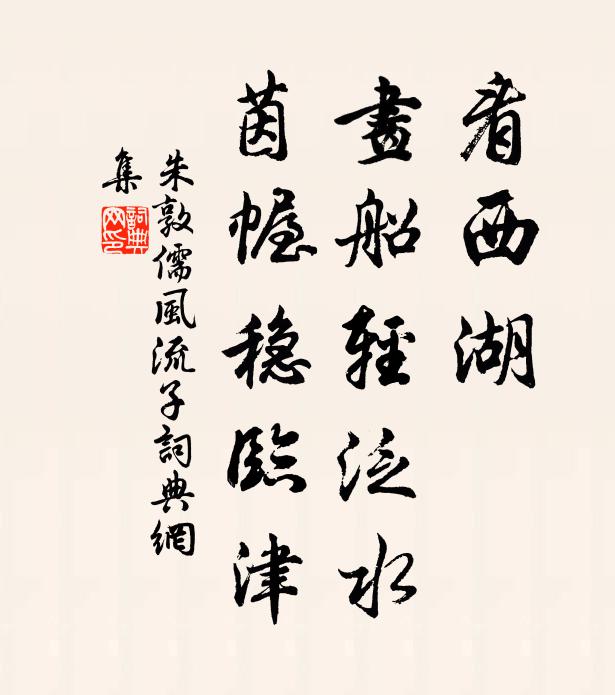 看西湖
畫船輕泛水
茵幄穩臨津
朱敦儒風流子詞典網
集
詞典網印